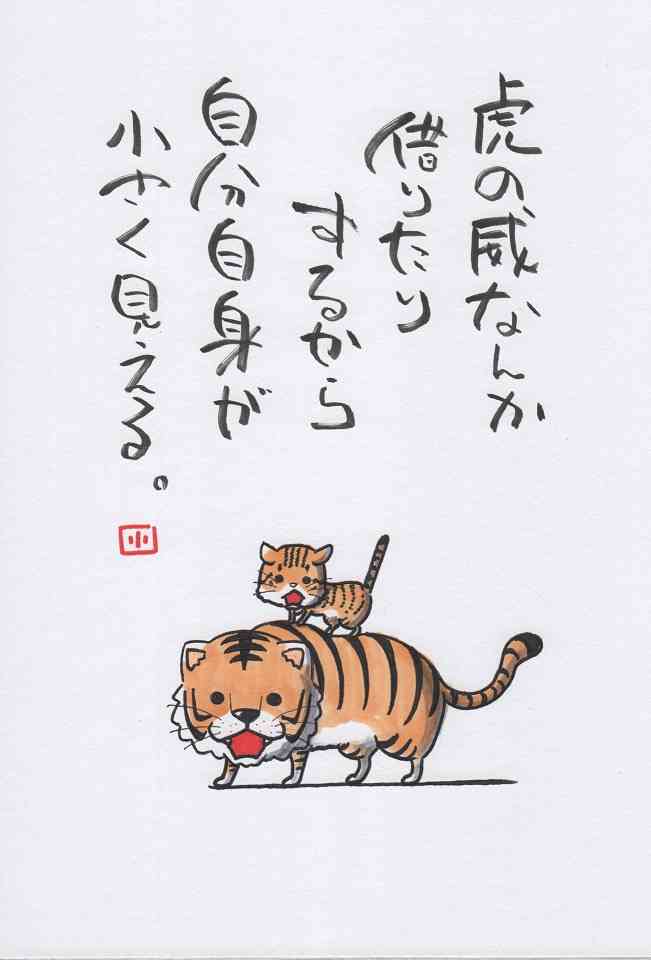 虎の威なんか
借りたり
するから
自分自身が
小さく見える。
小